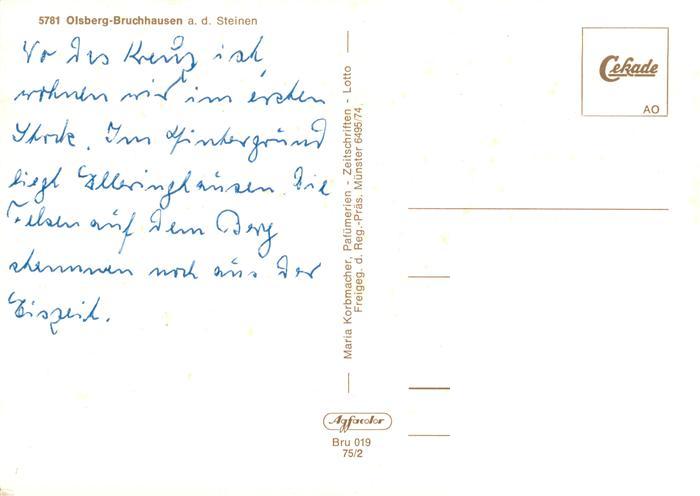 5781 Olsberg-Bruchhausen a. d. Steinen
Wo das Kreuz ist,
wohnen wir im ersten
Stock. Im Hintergrund
liegt Elleringhausen. Die
Felsen auf dem Berg
stammen noch aus der
Eiszeit.
Maria Korbmacher, Pafümerien - Zeitschriften - Lotto
Freigeg. d. Reg.-Präs. Münster 6495/74
Cekade
AO
Agfacolor
Bru 019
75/2